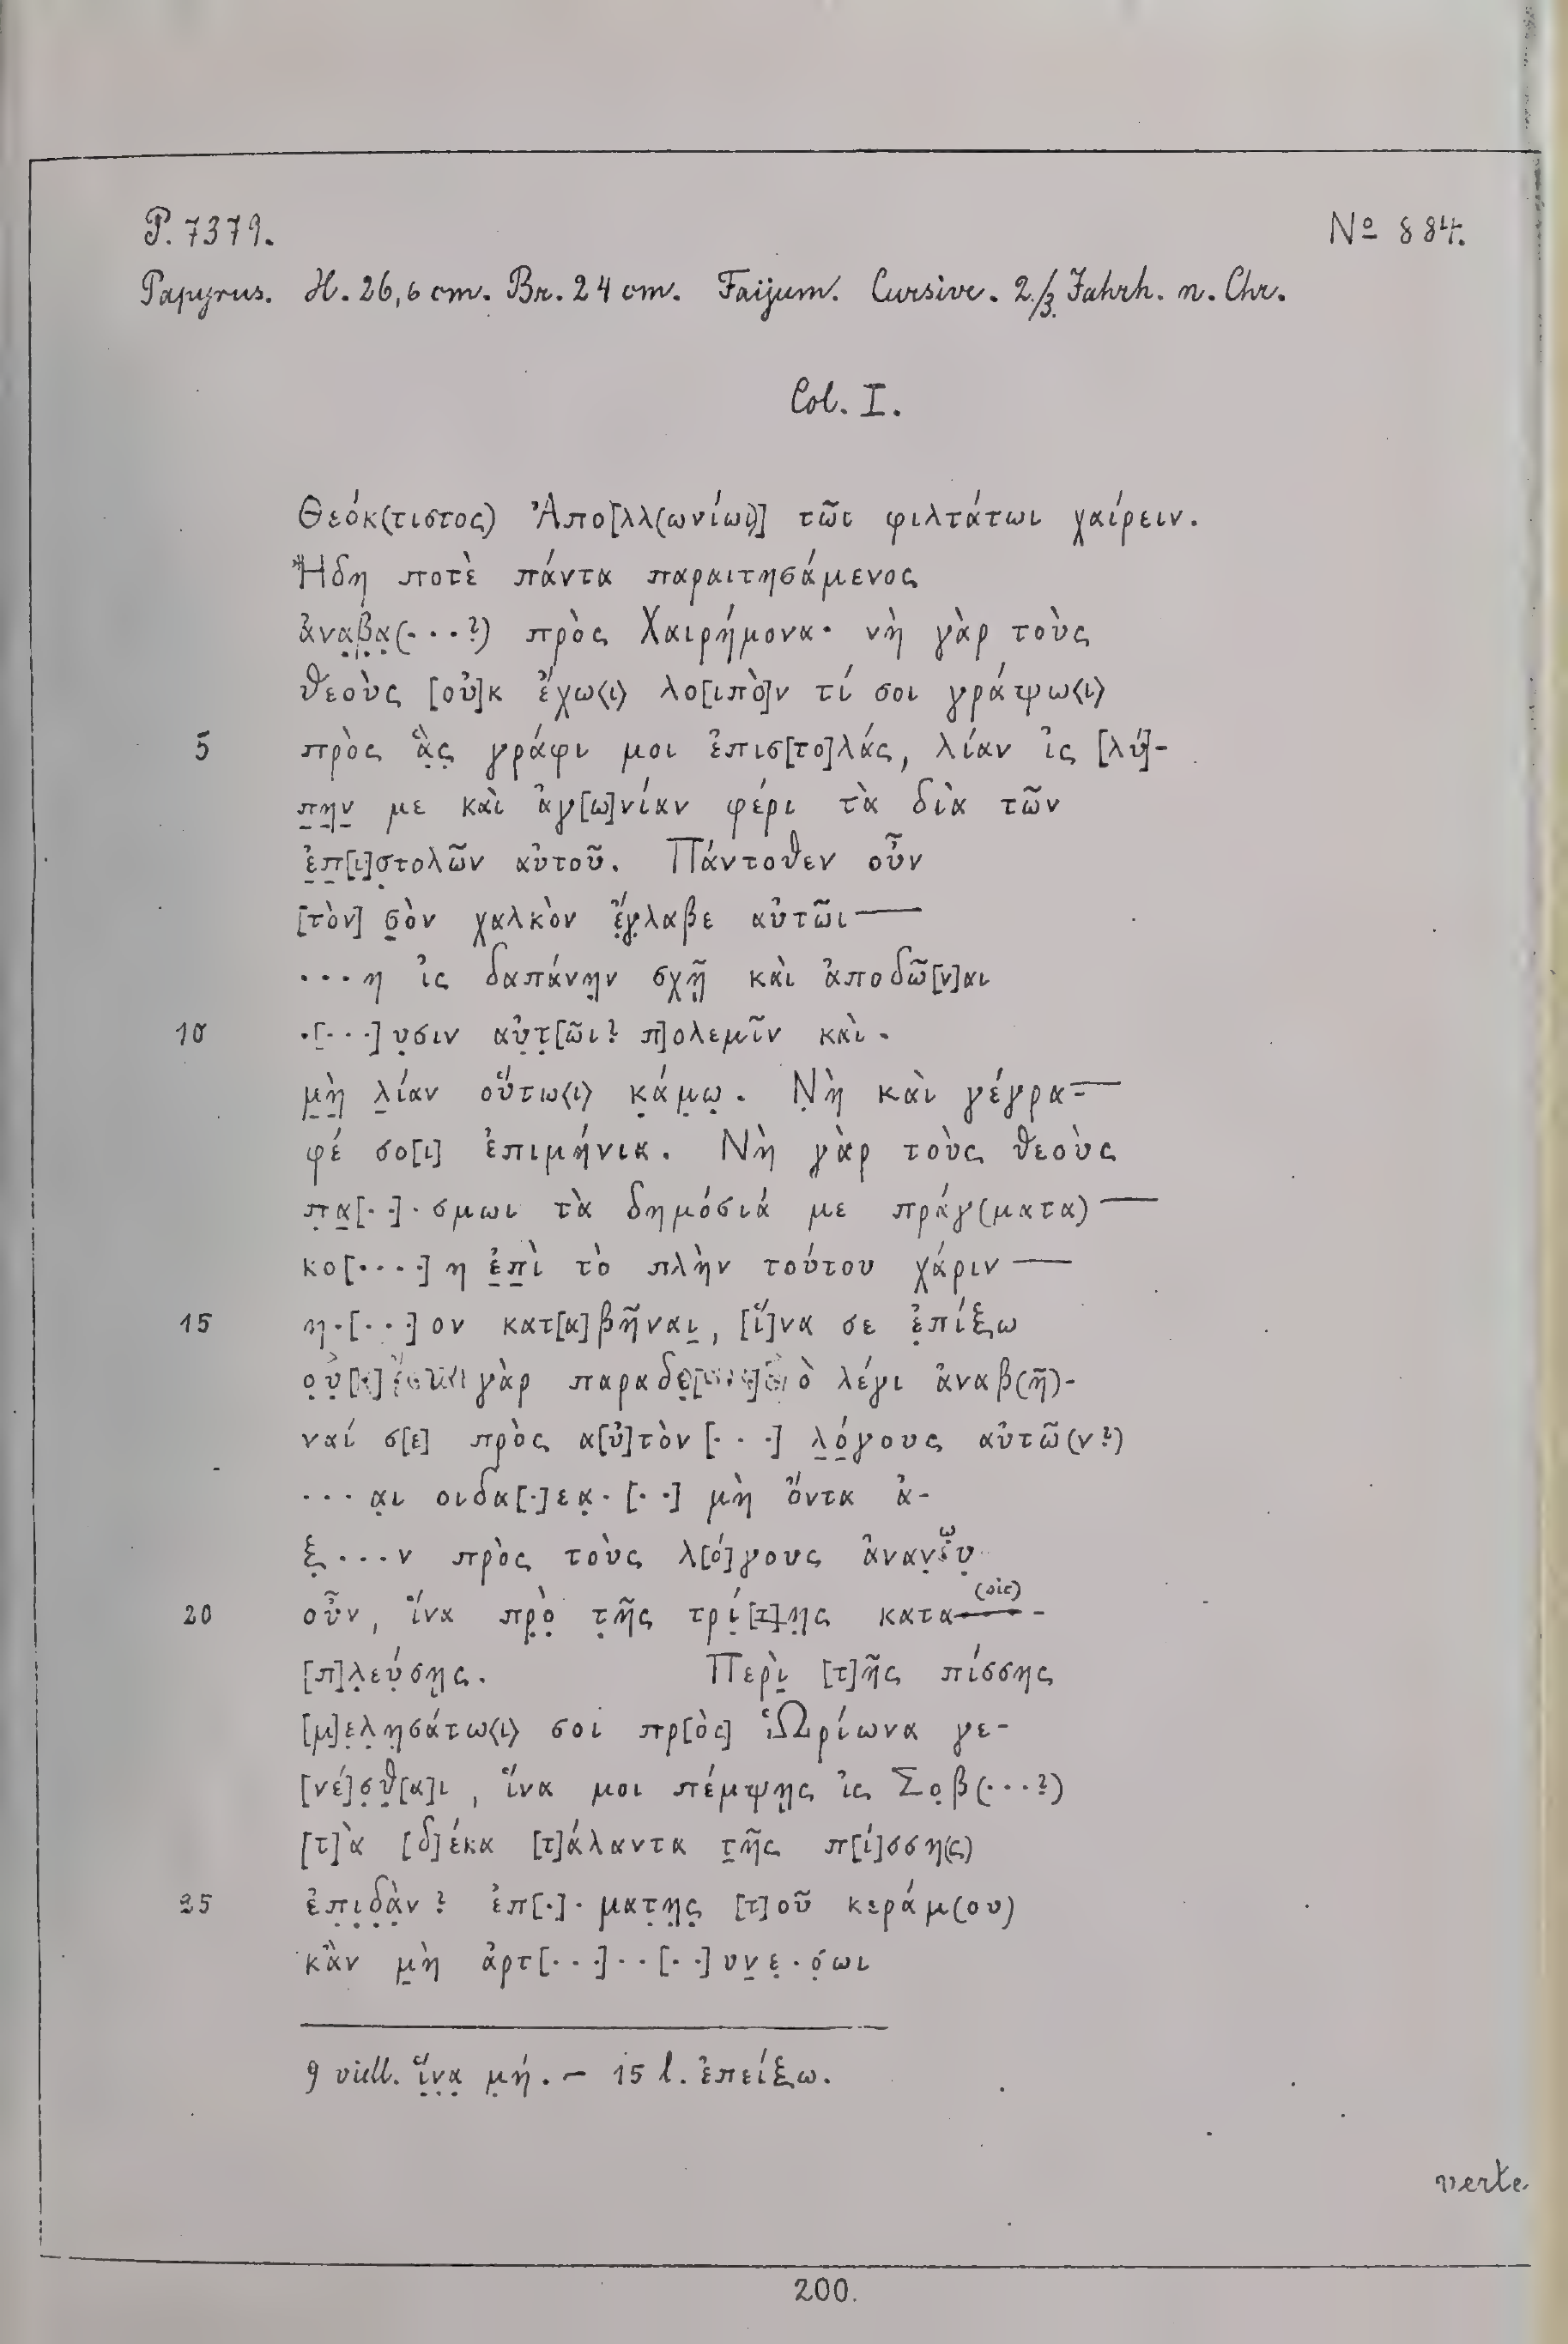 P. 7379. Nº 884.
Papyrus. H. 26,6 cm. Br. 24 cm. Faijum. Cursive. 2./3. Jahrh. n. Chr.
Col. I.
Θεόκ(τιστος) Ἀπο[λλ(ωνίωι)] τῶι φιλτάτωι χαίρειν.
Ἤδη ποτὲ πάντα παραιτησάμενος
ἀνα̣β̣α̣(···?) πρὸς Χαιρήμονα· νὴ γὰρ τοὺς
θεοὺς [οὐ]κ ἔχω⟨ι⟩ λο[ιπὸ]ν τί σοι γράψω⟨ι⟩
5 πρὸς ἃ̣ς̣ γράφι μοι ἐπισ[το]λάς, λίαν ἰς [λύ]-
π̣η̣ν̣ με καὶ ἀγ[ω]νίαν φέρι τὰ διὰ τῶν
ἐ̣π̣[ι]σ̣τολῶν αὐτοῦ. Πάντοθεν οὖν
[τὸν] σ̣ὸν χαλκὸν ἔ̣γ̣λαβε αὐτῶι —
···η ἰς δαπάνη̣ν σχῇ̣ καὶ ἀποδῶ[ν]αι
10 ·[···]υ̣σιν αὐ̣τ̣[ῶι? π]ολεμῖν καὶ ·
μ̣ὴ̣ λ̣ίαν οὕτω⟨ι⟩ κ̣άμ̣ω̣. Ν̣ὴ καὶ γέγρα-
φέ σο[ι] ἐπιμήνια. Νὴ γὰρ τοὺς θεοὺς
π̣α̣[··]·σμωι τὰ δημόσιά με πράγ(ματα) —
κο[····]η ἐ̣π̣ὶ τὸ πλὴν τούτου χάριν —
15 η·[···]ον κατ[α]βῆναι̣, [ἵ]να σε ἐ̣πίξω
γὰρ λέγι ἀναβ(ῆ)-
ναί σ[ε] πρὸς α[ὐ]τὸν [···] λ̣ό̣γους αὐτῶ(ν?)
···α̣ι οιδα[·]εα̣·[··] μὴ ὄντα ἀ-
ξ̣···ν πρὸς τοὺς λ[ό]γους
20 οὖν, ἵνα πρ̣ὸ̣ τ̣ῆς τρί̣[τ]η̣ς κατα (sic) -
[π]λ̣εύ̣σῃς. Περὶ̣ [τ]ῆς πίσσης
[μ]ε̣λ̣η̣σάτω⟨ι⟩ σοι πρ[ὸς] Ὡρίωνα γε-
[νέ]σ̣θ̣[α]ι, ἵνα μοι πέμψῃς ἰς Σο̣β(···?)
[τ]ὰ [δ]έκα [τ]άλαντα τ̣ῆς π[ί]σση(ς)
25 ἐπ̣ι̣δ̣ὰ̣ν? ἐπ[·]·ματ̣η̣ς̣ [τ]οῦ κεράμ(ου)
κἂν μ̣ὴ ἀρτ[···]··[··]υν̣ε̣·σ̣ωι
9 viell. ἵ̣ν̣α̣ μ̣ή. — 15 l. ἐπείξω.
verte
200.